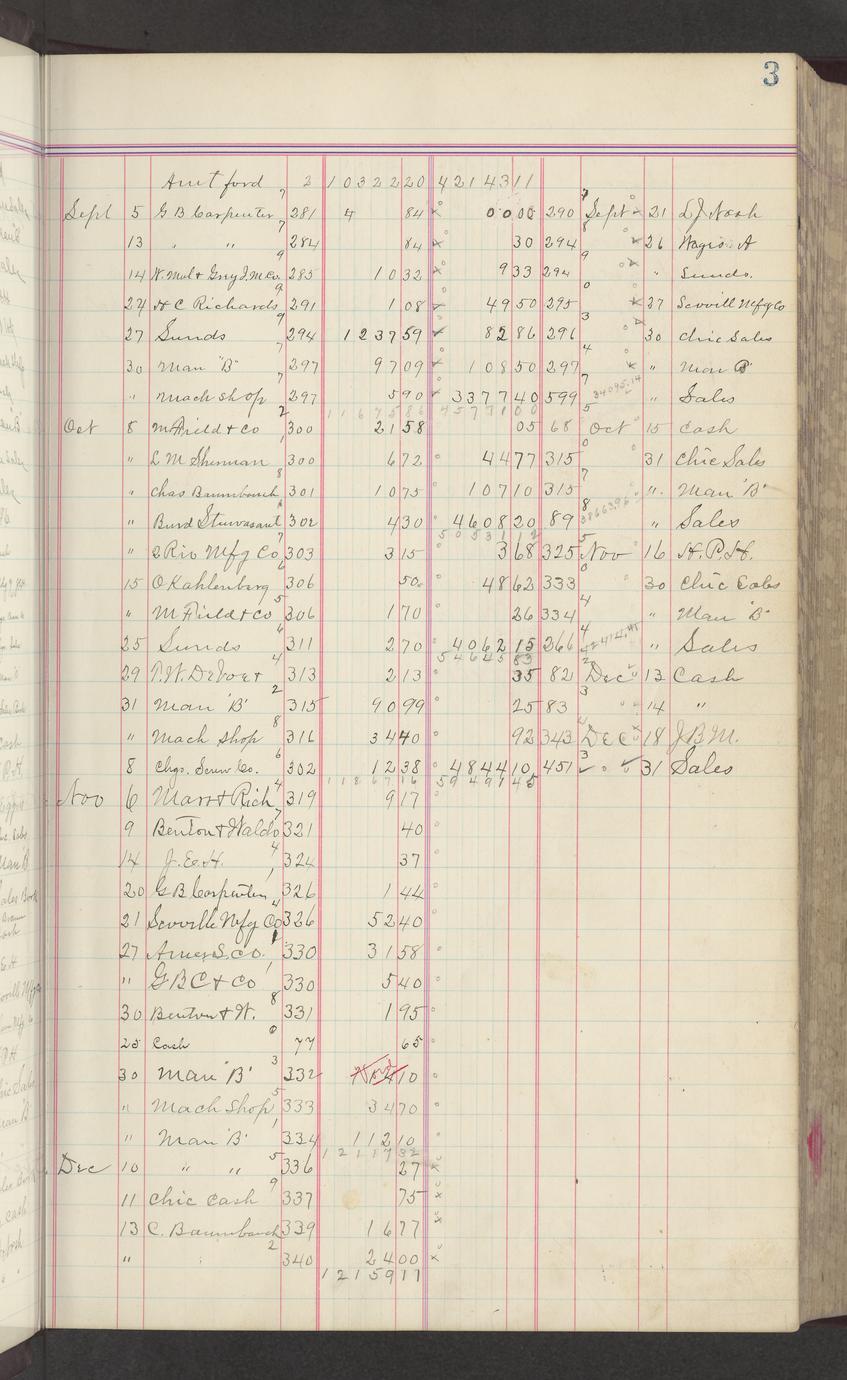 3
Amt ford 2 10322 20 42143 11
Sept 5 G B Carpenter 281 4 84 00 00 290 Sept 21 L J Nosh
13 " " 284 84 30 294 26 Wages A
14 285 10 32 9 33 294 " Sunds.
27 H C Richards 291 1 08 49 50 295 27 Scovill Mfg Co
27 Sunds 294 1237 59 82 86 296 30 Chic Sales
30 Man "B" 297 97 09 108 50 297 " Man B
" Mach shop 297 5 90 3377 40 599 34095.14 " Sales
11675 86 45771 00
Oct 8 M Field & Co 300 21 58 05 68 Oct 15 Cash
" L M Sherman 300 6 72 44 77 315 31 Chic Sales
" Chas Baumbach 301 10 75 107 10 315 " Man "B"
" Burd Sturvasant 302 4 30 4608 20 89 38663.96 " Sales
50531 12
" Q Riv Mfg Co 303 3 15 3 68 325 Nov 16 H. P. H.
15 O Kahlenberg 306 50 48 62 333 30 Chic Sales
" M Field & Co 306 1 70 26 334 " Man "B"
25 Sunds 311 2 70 4062 15 266 " Sales
54645 83
29 313 2 13 35 82 Dec 13 Cash
31 Man "B" 315 90 99 25 83 14 "
" Mach Shop 316 34 40 92 343 Dec 18 J B M.
8 Chgo. Screw Co. 302 12 38 4844 10 451 31 Sales
11867 16 59491 45
Nov 6 Marr & Rich 319 9 17
9 Benton & Waldo 321 40
14 J. E. H. 324 37
20 G B Carpenter 326 1 44
21 Scoville Mfg Co 326 52 40
27 Amer S. Co. 330 31 58
" G B C & Co 330 5 40
30 Benton & W. 331 1 95
25 Cash 77 65
30 Man "B" 332 10
" Mach Shop 333 34 70
" Man "B" 334 112 10
12117 32
Dec 10 " " 336 27
11 Chic Cash 337 75
13 C. Baumbach 339 16 77
" 340 24 00
12159 11